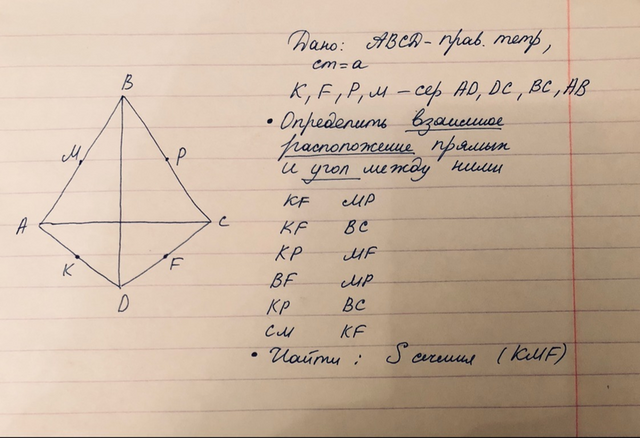 Дано: ABCD - прав. тетр,
ст = a
K, F, P, M - сер AD, DC, BC, AB
• Определить взаимное
расположение прямых
и угол между ними
KF MP
KF BC
KP MF
BF MP
KP BC
CM KF
• Найти: S сечения (KMF)
B
M
P
A
C
K
F
D